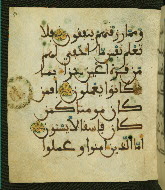 ومما رزقنهم ينفقون فلا
تعلم نفس ما اخفي لهم
من قرة اعين جزا بما
كانوا يعملون افمن
كان مومنا كمن
كان فاسقا لا يستون
اما الذين امنوا وعملوا